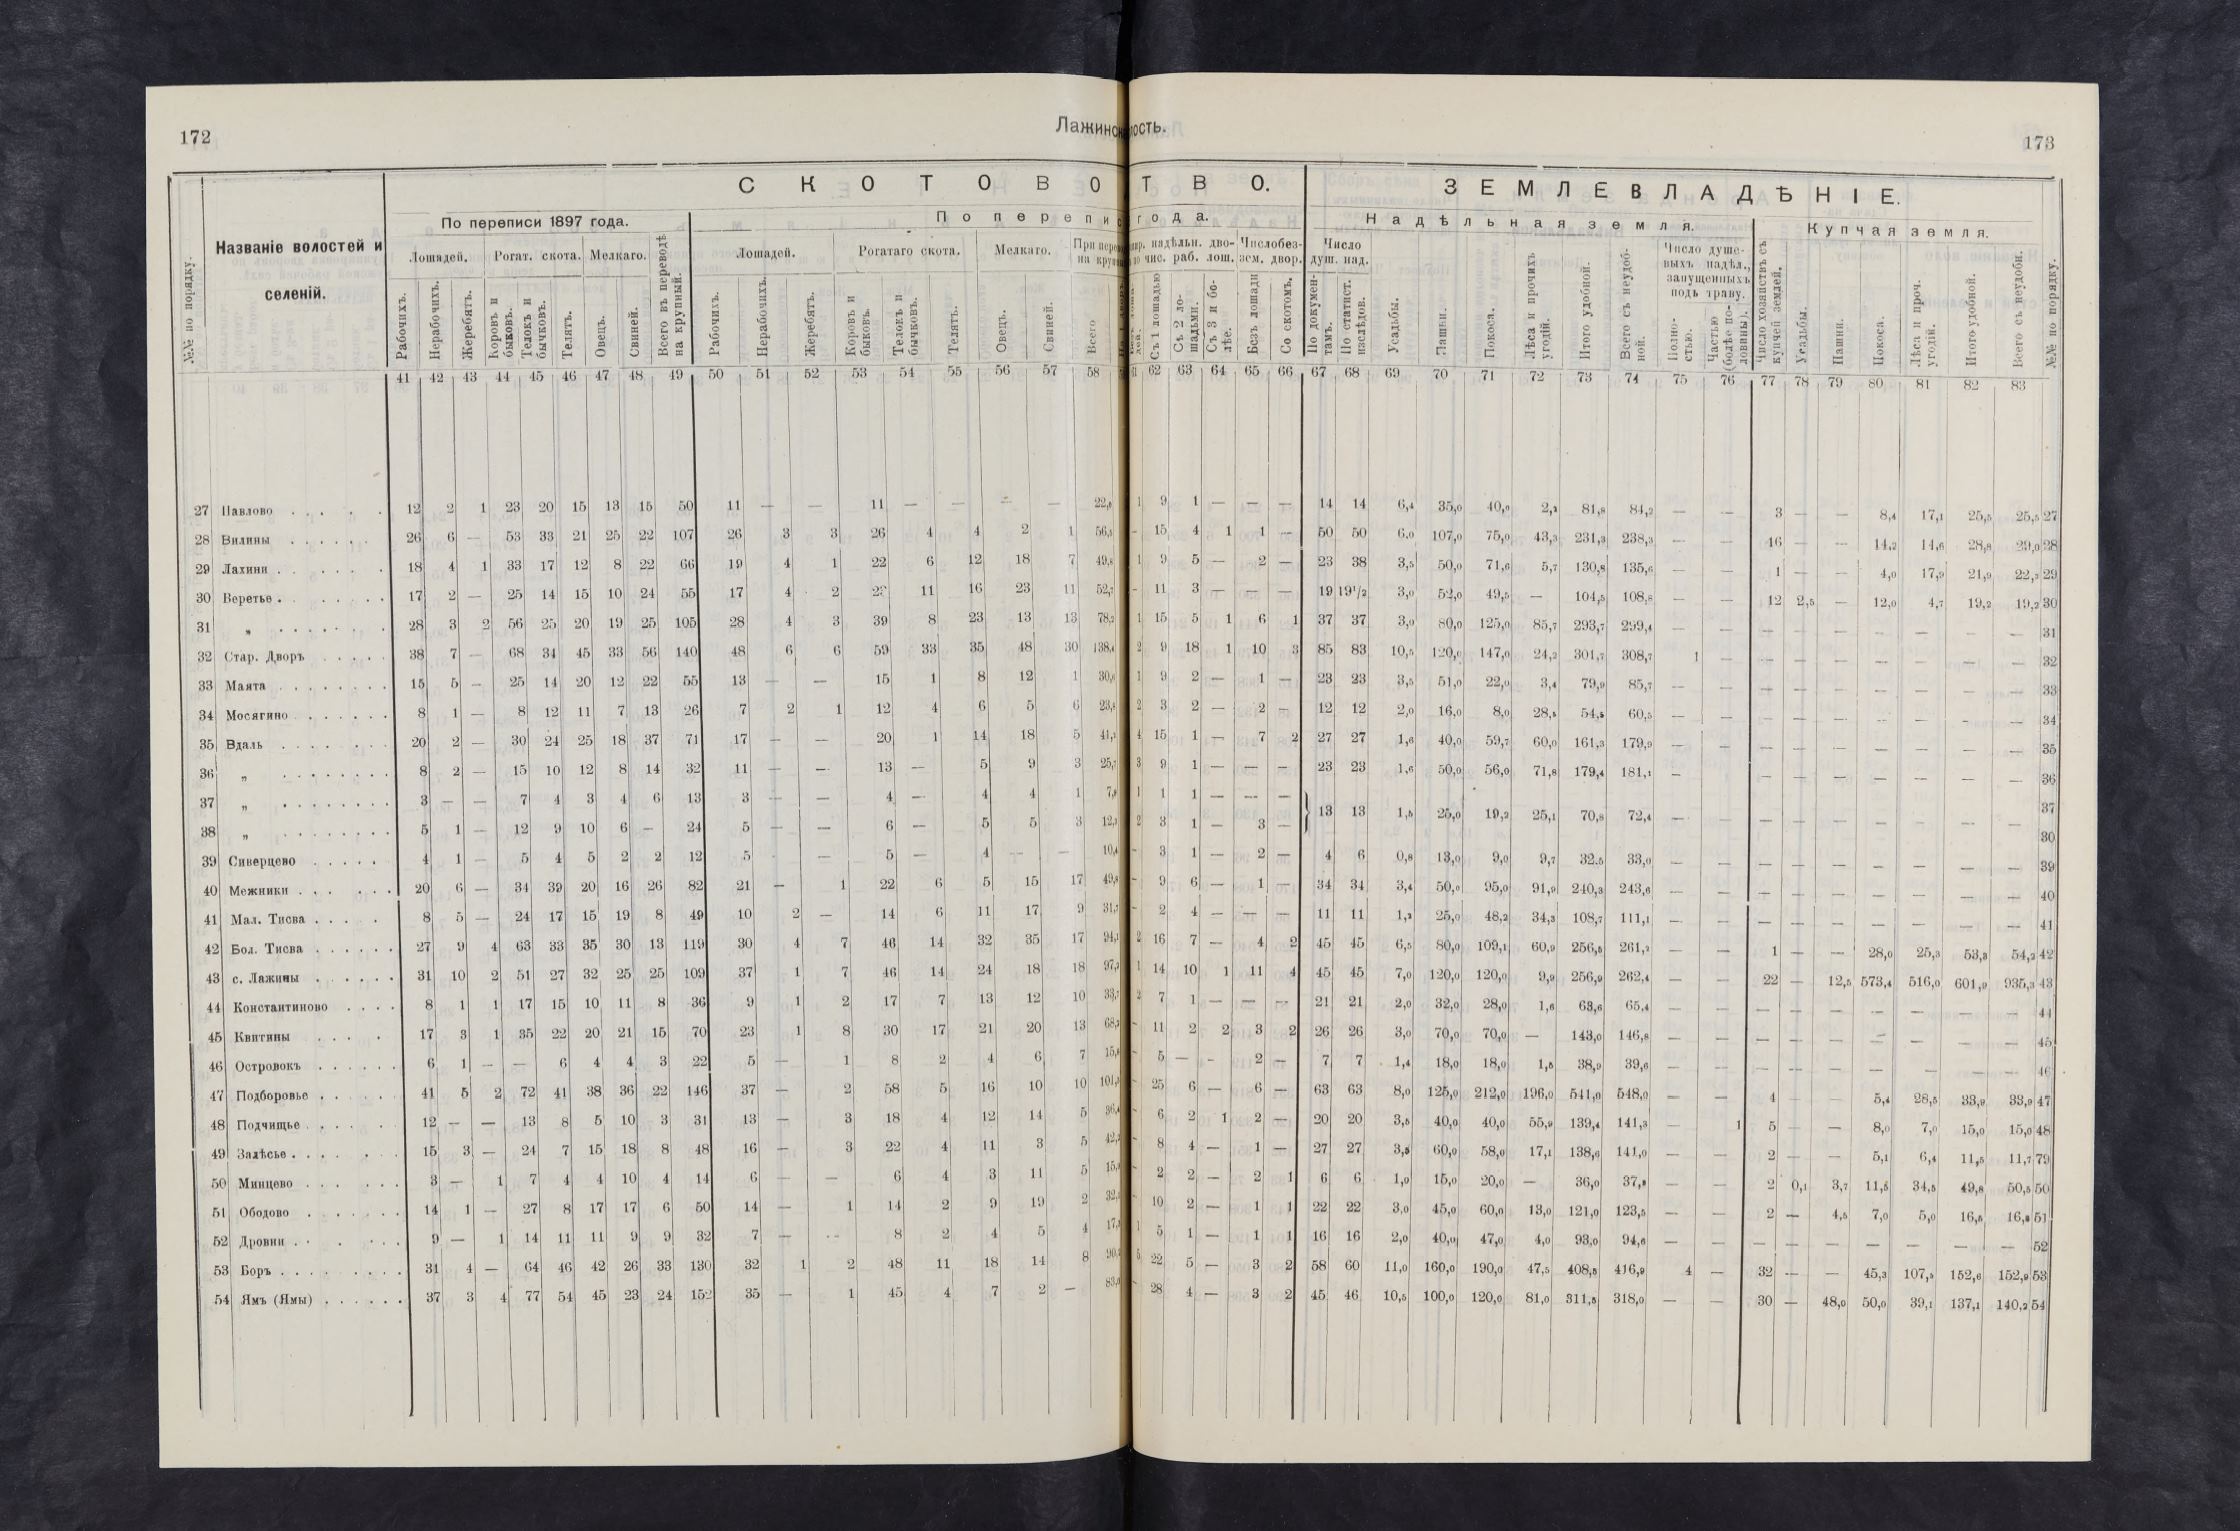 172
Лажинск
лость.
173
С К О Т О В О
Т В О.
З Е М Л Е В Л А Д Ѣ Н І Е.
По переписи 1897 года.
По перепис
года.
Надѣльная земля.
Купчая земля.
№№ по порядку.
Названіе волостей и
селеній.
Лошадей. Рогат. скота. Мелкаго. Всего въ переводѣ на крупный.
Лошадей. Рогатаго скота. Мелкаго.
надѣльн. дво- Число без-
чис. раб. лош. зем. двор.
Число
душ. над.
Число душе-
выхъ надѣл.,
запущенныхъ
подъ траву.
Рабочихъ. Нерабочихъ. Жеребятъ. Коровъ и быковъ. Телокъ и бычковъ. Телятъ. Овецъ. Свиней.
Рабочихъ. Нерабочихъ. Жеребятъ. Коровъ и быковъ. Телокъ и бычковъ. Телятъ. Овецъ. Свиней. Всего
Съ 1 лошадью Съ 2 ло-шадьми. Съ 3 и бо-лѣе. Безъ лошади Со скотомъ. По докумен-тамъ. По статист. изслѣдов. Усадьбы. Пашни. Покоса. Лѣса и прочихъ угодій. Итого удобной. Всего съ неудоб-ной. Полно-стью. Частью (болѣе по-ловины). Число хозяйствъ съ купчей землей. Усадьбы. Пашни. Покоса. Лѣса и проч. угодій. Итого удобной. Всего съ неудобн. №№ по порядку.
41 42 43 44 45 46 47 48 49 50 51 52 53 54 55 56 57 58
62 63 64 65 66 67 68 69 70 71 72 73 74 75 76 77 78 79 80 81 82 83
27 Павлово 12 2 1 23 20 15 13 15 50 11 — — 11 — — — —
1 9 1 — — — 14 14 6,4 35,0 40,0 81,8 84,2 — — 3 — — 8,4 17,1 25,5 25,5 27
28 Вилины 26 6 — 53 33 21 25 22 107 26 3 3 26 4 4 2 1
— 15 4 1 1 — 50 50 6,0 107,0 75,0 43,3 231,3 238,3 — — 16 — — 14,2 14,6 28,8 29,0 28
29 Лахини 18 4 1 33 17 12 8 22 66 19 4 1 22 6 12 18 7
1 9 5 — 2 — 23 38 3,5 50,0 71,6 5,7 130,8 135,6 — — 1 — — 4,0 17,9 21,9 22,2 29
30 Веретье 17 2 — 25 14 15 10 24 55 17 4 2 11 16 23 11 52,7
— 11 3 — — — 19 19½ 3,0 52,0 49,5 — 104,5 108,8 — — 12 2,5 — 12,0 4,7 19,2 19,2 30
31 „ 28 3 2 56 25 20 19 25 105 28 4 3 39 8 23 13 13 78,2
1 15 5 1 6 1 37 37 3,0 80,0 125,0 85,7 293,7 299,4 — — — — — — — — — 31
32 Стар. Дворъ 38 7 — 68 34 45 33 56 140 48 6 6 59 33 35 48 30 138,4
2 9 18 1 10 3 85 83 10,5 120,0 147,0 24,2 301,7 308,7 1 — — — — — — — — 32
33 Маята 15 5 — 25 14 20 12 22 55 13 — — 15 1 8 12 1
1 9 2 — 1 — 23 23 3,5 51,0 22,0 3,4 79,9 85,7 — — — — — — — — — 33
34 Мосягино 8 1 — 8 12 11 7 13 26 7 2 1 12 4 6 5 6
2 3 2 — 2 — 12 12 2,0 16,0 8,0 28,5 54,5 60,5 — — — — — — — — — 34
35 Вдаль 20 2 — 30 24 25 18 37 71 17 — — 20 1 14 18 5
4 15 1 — 7 2 27 27 1,6 40,0 59,7 60,0 161,3 179,9 — — — — — — — — — 35
36 „ 8 2 — 15 10 12 8 14 32 11 — — 13 — 5 9 3
3 9 1 — — — 23 23 1,6 50,0 56,0 71,8 179,4 181,1 — — — — — — — — 36
37 „ 3 — — 7 4 3 4 6 13 3 — — 4 — 4 4 1
1 1 1 — — — 37
38 „ 5 1 — 12 9 10 6 — 24 5 — — 6 — 5 5 3
2 3 1 — 3 — 13 13 1,5 25,0 19,2 25,1 70,8 72,4 — — — — — — — — — 30
39 Сиверцево 4 1 — 5 4 5 2 2 12 5 — 5 — 4 — — 10,4
— 3 1 — 2 — 4 6 0,8 13,0 9,0 9,7 32,5 33,0 — — — — — — — — — 39
40 Межники 20 6 — 34 39 20 16 26 82 21 — 1 22 6 5 15 17
— 9 6 — 1 — 34 34 3,4 50,0 95,0 91,9 240,3 243,6 — — — — — — — — — 40
41 Мал. Тисва 8 5 — 24 17 15 19 8 49 10 2 — 14 6 11 17 9
— 2 4 — — — 11 11 1,2 25,0 48,2 34,3 108,7 111,1 — — — — — — — — — 41
42 Бол. Тисва 27 9 4 63 33 35 30 13 119 30 4 7 46 14 32 35 17
2 16 7 — 4 2 45 45 6,5 80,0 109,1 60,9 256,5 261,2 — — 1 — — 28,0 25,3 53,3 54,2 42
43 с. Лажины 31 10 2 51 27 32 25 25 109 37 1 7 46 14 24 18 18
1 14 10 1 11 4 45 45 7,0 120,0 120,0 9,9 256,9 262,4 — — 22 — 12,5 573,4 516,0 601,9 935,3 43
44 Константиново 8 1 1 17 15 10 11 8 36 9 1 2 17 7 13 12 10
2 7 1 — — — 21 21 2,0 32,0 28,0 1,6 63,6 65,4 — — — — — — — — — 44
45 Квитины 17 3 1 35 22 20 21 15 70 23 1 8 30 17 21 20 13
— 11 2 2 3 2 26 26 3,0 70,0 70,0 — 143,0 146,8 — — — — — — — — — 45
46 Островокъ 6 1 — — 6 4 4 3 22 5 — 1 8 2 4 6 7
— 5 — - 2 — 7 7 1,4 18,0 18,0 1,5 38,9 39,6 — — — — — — — — — 46
47 Подборовье 41 5 2 72 41 38 36 22 146 37 — 2 58 5 16 10 10
— 25 6 — 6 — 63 63 8,0 125,0 212,0 196,0 541,0 548,0 — — 4 — — 5,4 28,5 33,9 33,9 47
48 Подчищье 12 — — 13 8 5 10 3 31 13 — 3 18 4 12 14 5
— 6 2 1 2 — 20 20 3,5 40,0 40,0 55,9 139,4 141,3 — 1 5 — — 8,0 7,0 15,0 15,0 48
49 Залѣсье 15 3 — 24 7 15 18 8 48 16 — 3 22 4 11 3 5
— 8 4 — 1 — 27 27 3,5 60,0 58,0 17,1 138,6 141,0 — — 2 — — 5,1 6,4 11,5 11,7 79
50 Минцево 3 — 1 7 4 4 10 4 14 6 — — 6 4 3 11 5
— 2 2 — 2 1 6 6 1,0 15,0 20,0 — 36,0 — — 2 0,1 3,7 11,5 34,5 49,8 50,5 50
51 Ободово 14 1 — 27 8 17 17 6 50 14 — 1 14 2 9 19 2
— 10 2 — 1 1 22 22 3,0 45,0 60,0 13,0 121,0 123,5 — — 2 — 4,5 7,0 5,0 16,5 16,8 51
52 Дровни 9 — 1 14 11 11 9 9 32 7 — — 8 2 4 5 4
1 5 1 — 1 1 16 16 2,0 40,0 47,0 4,0 93,0 94,6 — — — — — — — — — 52
53 Боръ 31 4 — 64 46 42 26 33 130 32 1 2 48 11 18 14 8
5 22 5 — 3 2 58 60 11,0 160,0 190,0 47,5 408,5 416,9 4 — 32 — — 45,3 107,5 152,6 152,9 53
54 Ямъ (Ямы) 37 3 4 77 54 45 23 24 152 35 — 1 45 4 7 2 —
— 28 4 — 3 2 45 46 10,5 100,0 120,0 81,0 311,5 318,0 — — 30 — 48,0 50,0 39,1 137,1 140,2 54